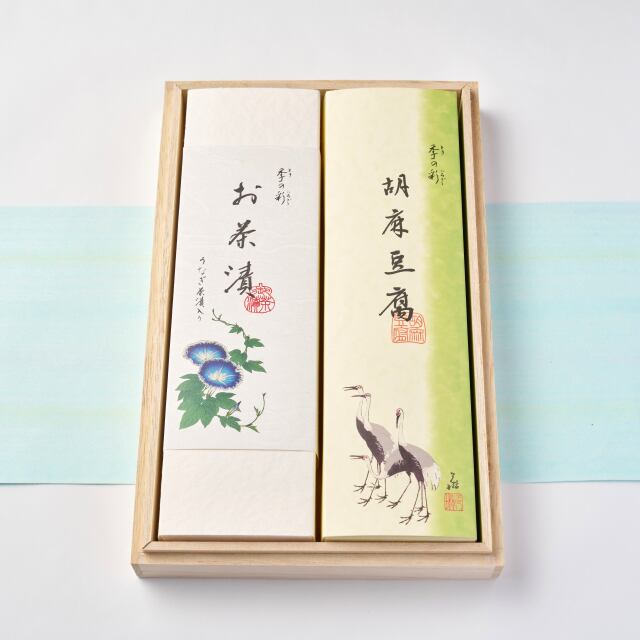 季の彩
お茶漬
うなぎ茶漬入り
季の彩
胡麻豆腐